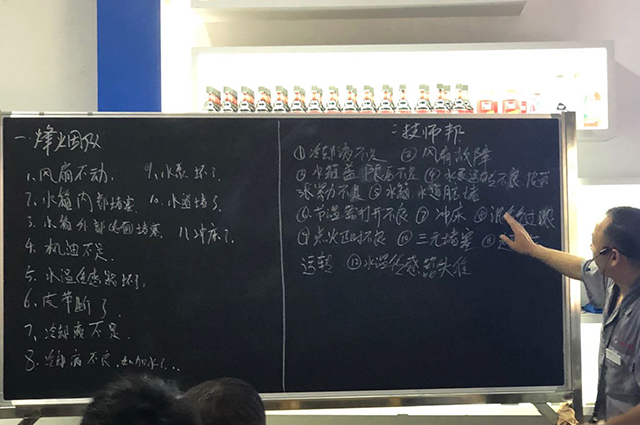 一 烽火团队
1、风扇不动、 9、水泵坏了
2、水箱内部堵塞 10、水道堵了
3、水箱外部 堵塞 11、冲床了
4、机油不足
5、水温传感器坏了
6、皮带断了
7、冷却液不足
8、冷却 不良
二 技师帮
①冷却液不足 ②风扇故障
③水箱盖 不足 ④水泵 不良 皮带
⑤水箱水道脏堵
⑥节温器打开不良 ⑦冲床 ⑧ 过
⑨点火正时不良 ⑩三元堵塞 ⑪
运转 ⑫水温传感器失准